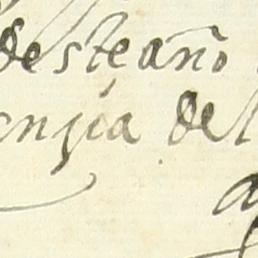 desteaño
ençia del